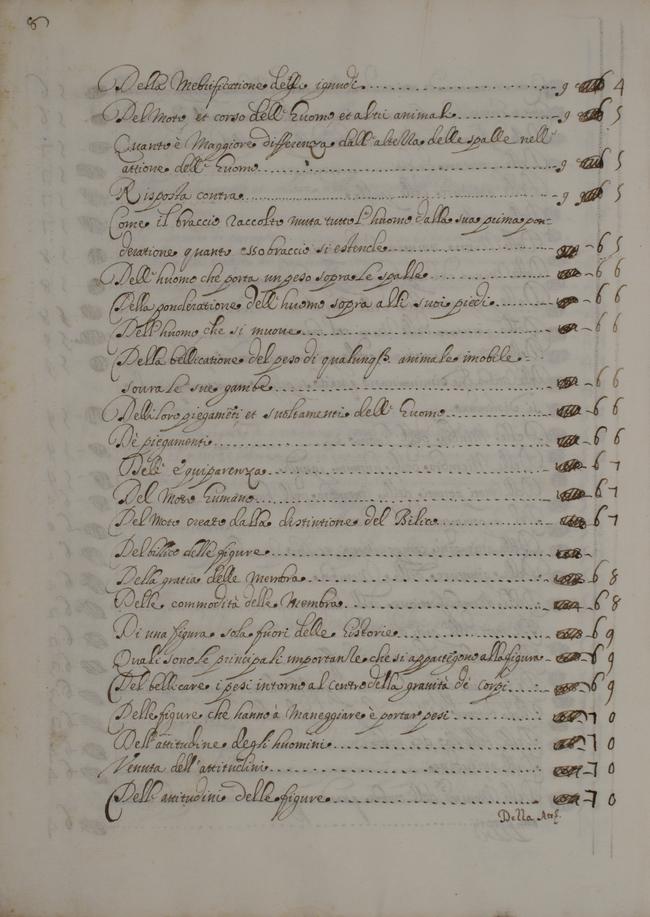 8
Della Mebrificatione delli ignudi 64
Del Moto et corso dell' huomo et altri animali 65
Quanto è Maggiore differenza dall' altezza delle spalle nell'
attione dell' huomo 65
Risposta contra 65
Come il braccio raccolto muta tutto l'huomo dalla sua prima pon-
deratione quanto esso braccio si estende 65
Dell' huomo che porta un peso sopra le spalle 66
Della ponderatione dell' huomo sopra alli suoi piedi 66
Dell' huomo che si muove 66
Della bellicatione del peso di qualunq3 animale imobile
sovra le sue gambe 66
Delli loro piegamēti et svoltamenti dell' huomo 66
De piegamenti 66
Dell' equiparenza 67
Del Moto humano 67
Del Moto creato dalla distintione del Bilico 67
Del bilico delle figure
Della gratia delle Membra 68
Delle commodità delle Membra 68
Di una figura sola fuori delle historie 69
Quali sono le principali importanze che si appartēgono alla figura 69
Del bellicare i pesi intorno al centro della gravità de corpi 69
Delle figure che hanno à Maneggiare è portar pesi 70
Dell' attitudine degli huomini 70
Venuta dell' attitudini 70
Dell' attitudini delle figure 70
Della